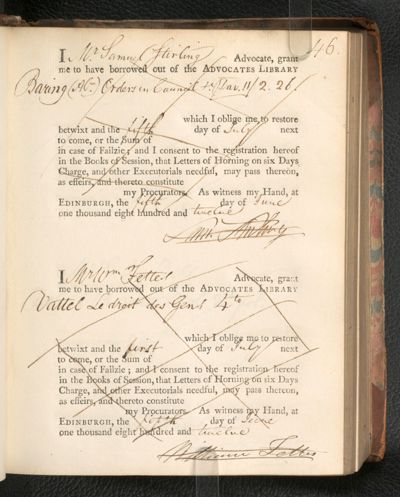 146.
I Mr Samuel Stirling Advocate, grant
me to have borrowed out of the ADVOCATES LIBRARY
Baring (Alr.) Orders in Council 11/2. 26.
which I oblige me to restore
betwixt and the fifth day of July next
to come, or the Sum of
in case of Failzie; and I consent to the registration hereof
in the Books of Session, that Letters of Horning on six Days
Charge, and other Executorials needful, may pass thereon,
as effeirs, and thereto constitute
my Procurators. As witness my Hand, at
EDINBURGH, the fifth day of June
one thousand eight hundred and twelve
I Mr Wm Fettes Advocate, grant
me to have borrowed out of the ADVOCATES LIBRARY
Vattel Le droit des Gens 4to
which I oblige me to restore
betwixt and the first day of July next
to come, or the Sum of
in case of Failzie; and I consent to the registration hereof
in the Books of Session, that Letters of Horning on six Days
Charge, and other Executorials needful, may pass thereon,
as effeirs, and thereto constitute
my Procurators. As witness my Hand, at
EDINBURGH, the fifth day of June
one thousand eight hundred and twelve
William Fettes